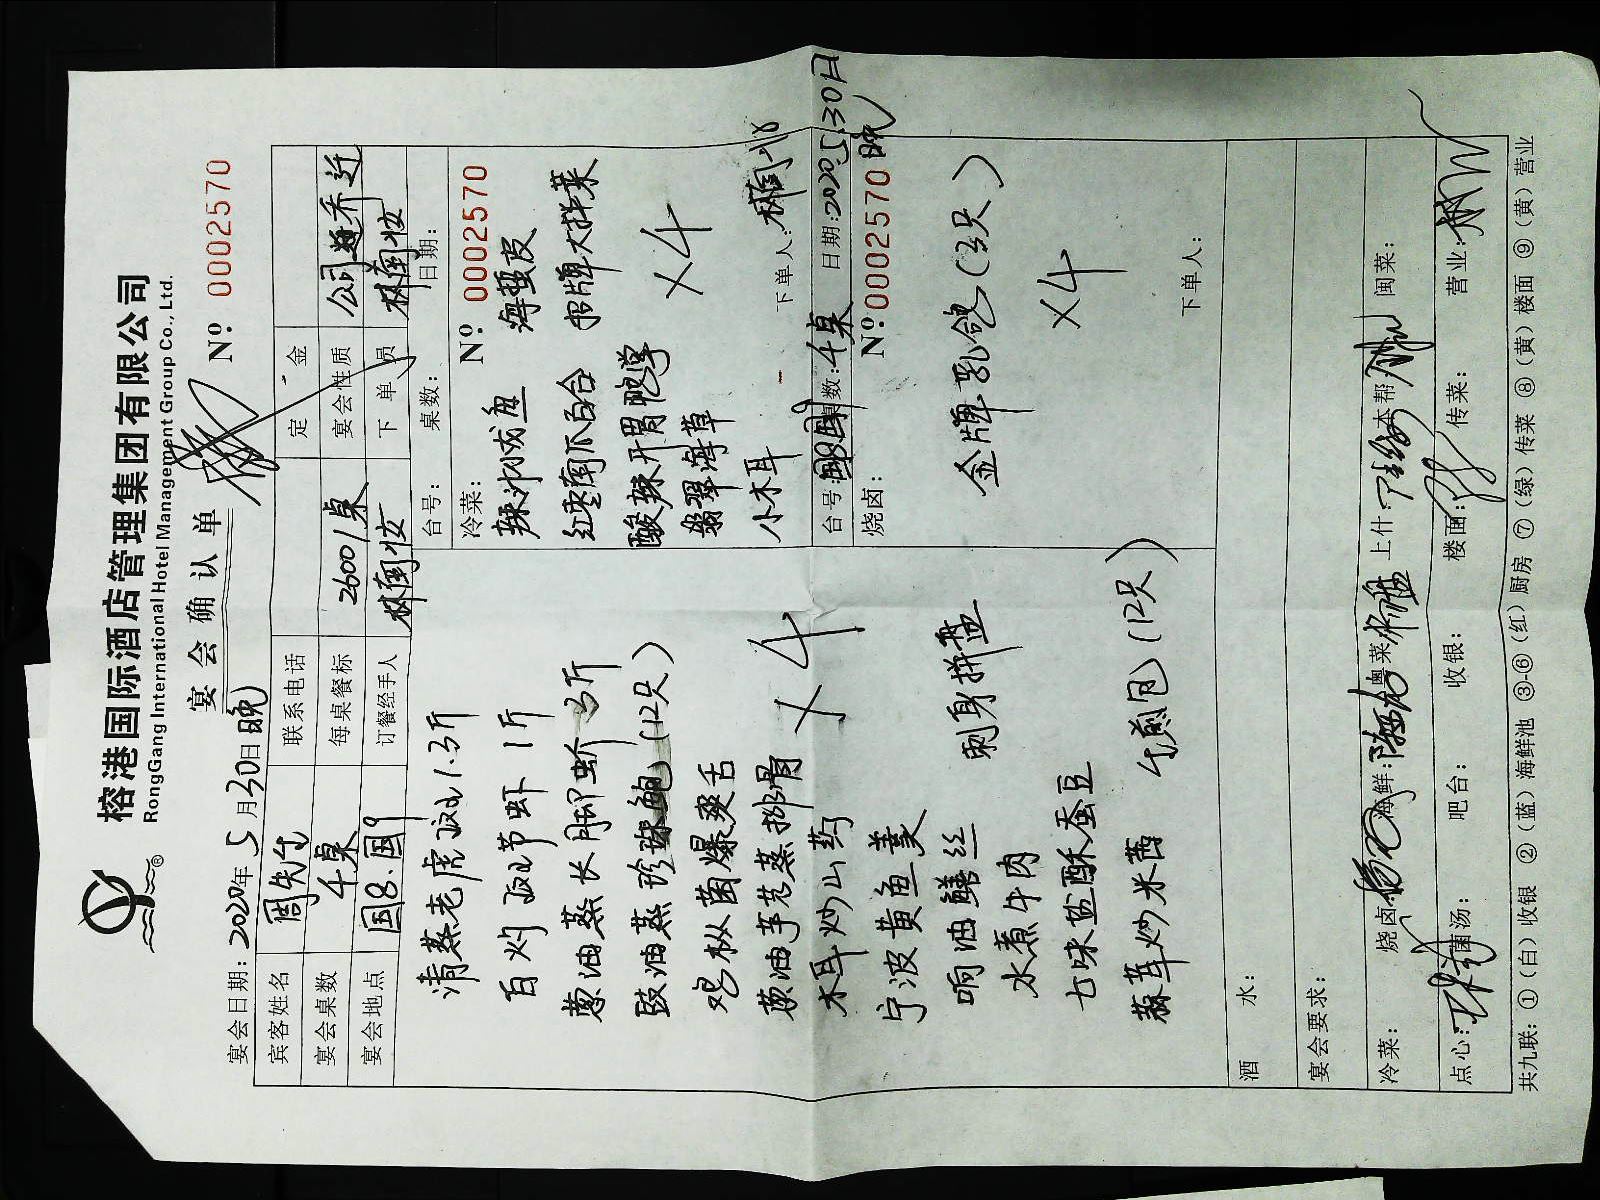 榕港国际酒店管理集团有限公司
RongGang International Hotel Management Group Co.,Ltd.
宴会确认单
宴会日期：2020年5月30日晚
Nº 0002570
宾客姓名 周先生 联系电话 定金
宴会桌数 4桌 每桌餐标 2600/桌 宴会性质 公司
宴会地点 国8.国9 订餐经手人 林闽妆 下单员 林闽妆
清蒸老虎斑1.3斤
白灼斑节虾1斤
葱油蒸长脚蛏3斤
豉油蒸珍珠鲍（12只）
鸡枞菌爆爽舌
葱油芋艿蒸排骨
×4
木耳炒山药
宁波黄鱼羹
响油鳝丝
刺身拼盘
水煮牛肉
七味盐酥蚕豆
蒜茸炒米苋
生煎包（12只）
台号： 桌数： 日期：
冷菜： Nº 0002570
辣沙成鱼 海蜇皮
红枣南瓜百合 招牌大拌菜
酸辣开胃鸭掌
翡翠海草 ×4
小木耳
下单人：
台号：国8国9 桌数：4桌 日期：2020.5.30日晚
烧卤： Nº 0002570
金牌乳鸽（3只）
×4
下单人：
酒水：
宴会要求：
冷菜： 烧卤： 海鲜： 粤菜： 上什： 本帮： 闽菜：
点心： 菌汤： 吧台： 收银： 楼面： 传菜： 营业：
共九联：①（白）收银 ②（蓝）海鲜池 ③-⑥（红）厨房 ⑦（绿）传菜 ⑧（黄）楼面 ⑨（黄）营业